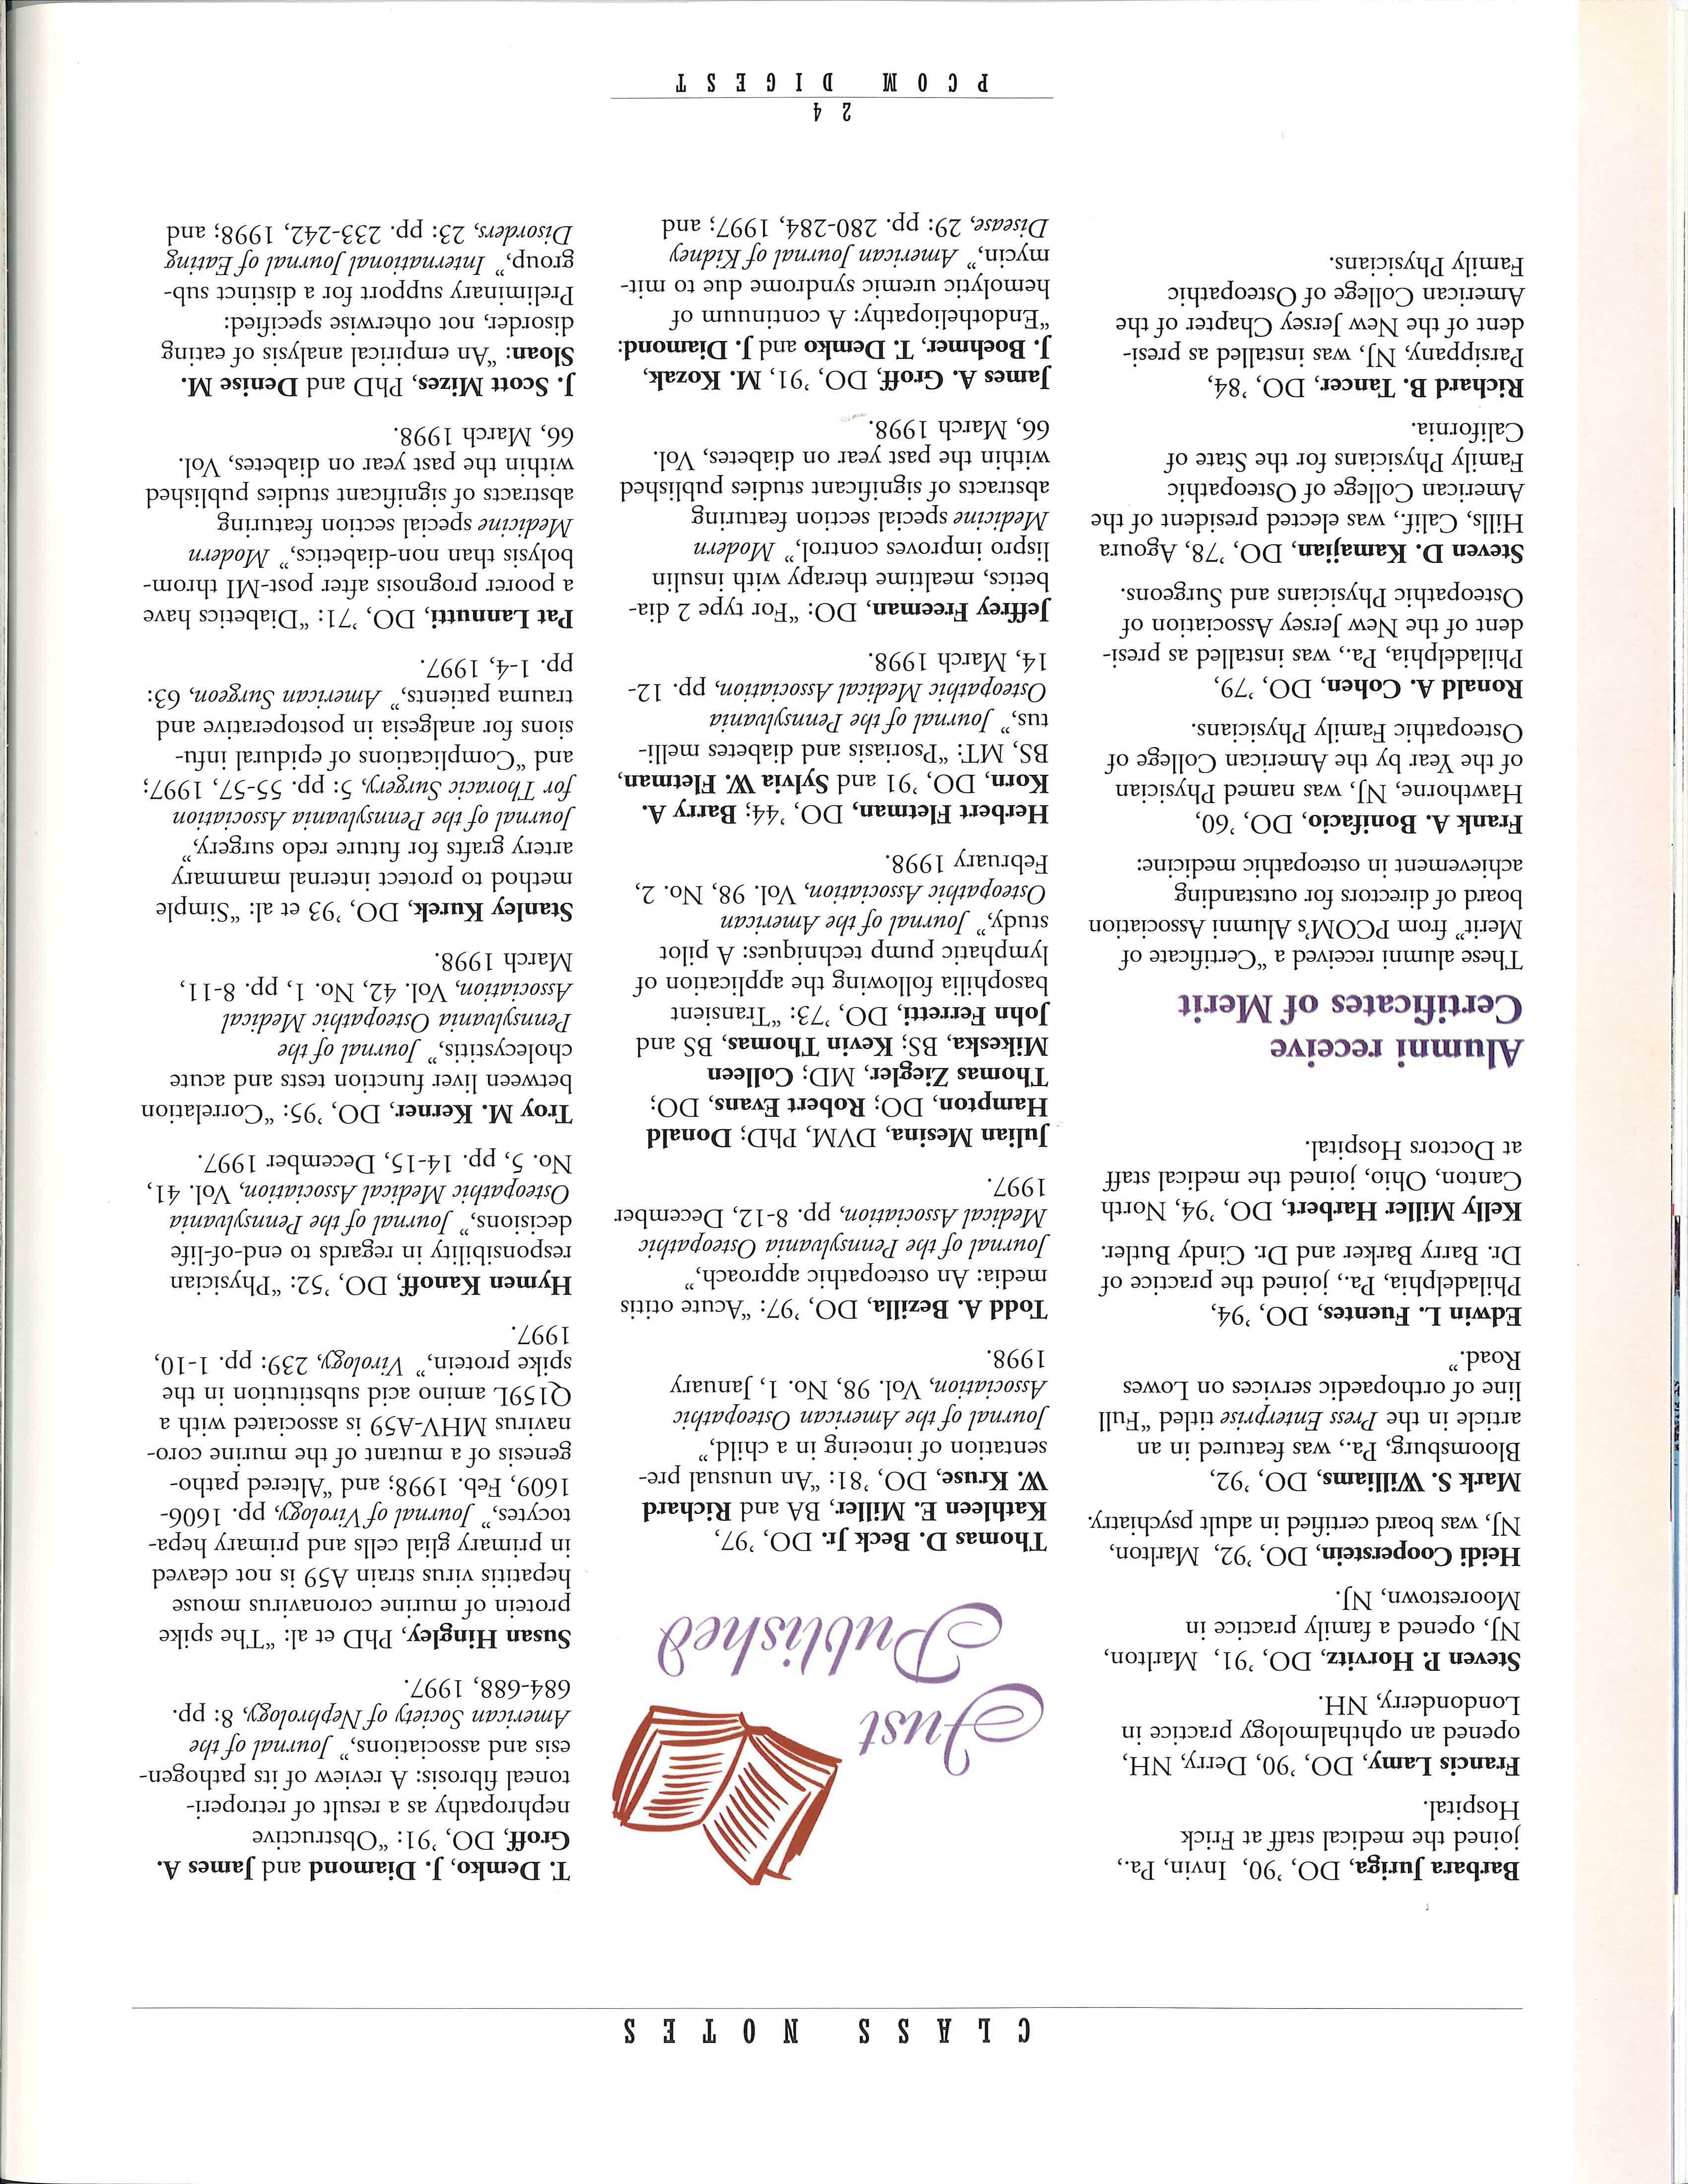 CLASS NOTES
Barbara Juriga, DO, ’90, Invin, Pa.,
joined the medical staff at Frick
Hospital.
Francis Lamy, DO, ’90, Derry, NH,
opened an ophthalmology practice in
Londonderry, NH.
Steven P. Horvitz, DO, ’91, Marlton,
NJ, opened a family practice in
Moorestown, NJ.
Heidi Cooperstein, DO, ’92, Marlton,
NJ, was board certified in adult psychiatry.
Mark S. Williams, DO, ’92,
Bloomsburg, Pa., was featured in an
article in the Press Enterprise titled “Full
line of orthopaedic services on Lowes
Road.”
Edwin L. Fuentes, DO, ’94,
Philadelphia, Pa., joined the practice of
Dr. Barry Barker and Dr. Cindy Butler.
Kelly Miller Harbert, DO, ’94, North
Canton, Ohio, joined the medical staff
at Doctors Hospital.
Alumni receive
Certificates of Merit
These alumni received a “Certificate of
Merit” from PCOM’s Alumni Association
board of directors for outstanding
achievement in osteopathic medicine:
Frank A. Bonifacio, DO, ’60,
Hawthorne, NJ, was named Physician
of the Year by the American College of
Osteopathic Family Physicians.
Ronald A. Cohen, DO, ’79,
Philadelphia, Pa., was installed as presi-
dent of the New Jersey Association of
Osteopathic Physicians and Surgeons.
Steven D. Kamajian, DO, ’78, Agoura
Hills, Calif., was elected president of the
American College of Osteopathic
Family Physicians for the State of
California.
Richard B. Tancer, DO, ’84,
Parsippany, NJ, was installed as presi-
dent of the New Jersey Chapter of the
American College of Osteopathic
Family Physicians.
Just
Published
Thomas D. Beck Jr. DO, ’97,
Kathleen E. Miller, BA and Richard
W. Kruse, DO, ’81: “An unusual pre-
sentation of intoeing in a child,”
Journal of the American Osteopathic
Association, Vol. 98, No. 1, January
1998.
Todd A. Bezilla, DO, ’97: “Acute otitis
media: An osteopathic approach,”
Journal of the Pennsylvania Osteopathic
Medical Association, pp. 8-12, December
1997.
Julian Mesina, DVM, PhD; Donald
Hampton, DO; Robert Evans, DO;
Thomas Ziegler, MD; Colleen
Mikeska, BS; Kevin Thomas, BS and
John Ferretti, DO, ’73: “Transient
basophilia following the application of
lymphatic pump techniques: A pilot
study,” Journal of the American
Osteopathic Association, Vol. 98, No. 2,
February 1998.
Herbert Fletman, DO, ’44; Barry A.
Korn, DO, ’91 and Sylvia W. Fletman,
BS, MT: “Psoriasis and diabetes melli-
tus,” Journal of the Pennsylvania
Osteopathic Medical Association, pp. 12-
14, March 1998.
Jeffrey Freeman, DO: “For type 2 dia-
betics, mealtime therapy with insulin
lispro improves control,” Modern
Medicine special section featuring
abstracts of significant studies published
within the past year on diabetes, Vol.
66, March 1998.
James A. Groff, DO, ’91, M. Kozak,
J. Boehmer, T. Demko and J. Diamond:
“Endotheliopathy: A continuum of
hemolytic uremic syndrome due to mit-
mycin,” American Journal of Kidney
Disease, 29: pp. 280-284, 1997; and
T. Demko, J. Diamond and James A.
Groff, DO, ’91: “Obstructive
nephropathy as a result of retroperi-
toneal fibrosis: A review of its pathogen-
esis and associations,” Journal of the
American Society of Nephrology, 8: pp.
684-688, 1997.
Susan Hingley, PhD et al: “The spike
protein of murine coronavirus mouse
hepatitis virus strain A59 is not cleaved
in primary glial cells and primary hepa-
tocytes,” Journal of Virology, pp. 1606-
1609, Feb. 1998; and “Altered patho-
genesis of a mutant of the murine coro-
navirus MHV-A59 is associated with a
Q159L amino acid substitution in the
spike protein,” Virology, 239: pp. 1-10,
1997.
Hymen Kanoff, DO, ’52: “Physician
responsibility in regards to end-of-life
decisions,” Journal of the Pennsylvania
Osteopathic Medical Association, Vol. 41,
No. 5, pp. 14-15, December 1997.
Troy M. Kerner, DO, ’95: “Correlation
between liver function tests and acute
cholecystitis,” Journal of the
Pennsylvania Osteopathic Medical
Association, Vol. 42, No. 1, pp. 8-11,
March 1998.
Stanley Kurek, DO, ’93 et al: “Simple
method to protect internal mammary
artery grafts for future redo surgery,”
Journal of the Pennsylvania Association
for Thoracic Surgery, 5: pp. 55-57, 1997;
and “Complications of epidural infu-
sions for analgesia in postoperative and
trauma patients,” American Surgeon, 63:
pp. 1-4, 1997.
Pat Lannutti, DO, ’71: “Diabetics have
a poorer prognosis after post-MI throm-
bolysis than non-diabetics,” Modern
Medicine special section featuring
abstracts of significant studies published
within the past year on diabetes, Vol.
66, March 1998.
J. Scott Mizes, PhD and Denise M.
Sloan: “An empirical analysis of eating
disorder, not otherwise specified:
Preliminary support for a distinct sub-
group,” International Journal of Eating
Disorders, 23: pp. 233-242, 1998; and
24
PCOM DIGEST